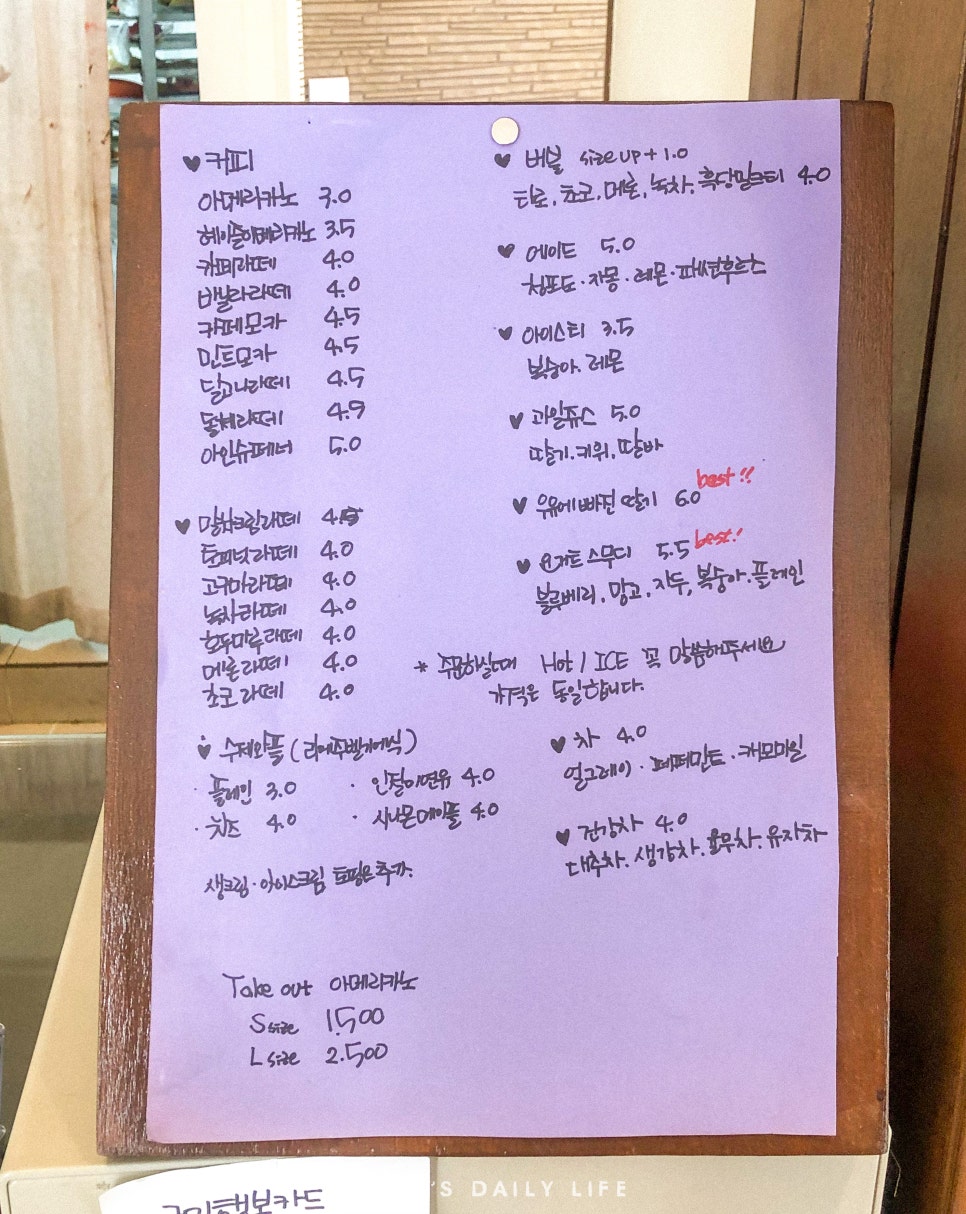 ♥ 커피
아메리카노 3.0
헤이즐아메리카노 3.5
카페라떼 4.0
바닐라라떼 4.0
카페모카 4.5
민트모카 4.5
달고나라떼 4.5
돌체라떼 4.9
아인슈페너 5.0
♥ 말차크림라떼 4.5
토피넛라떼 4.0
고구마라떼 4.0
녹차라떼 4.0
호두마루라떼 4.0
메론라떼 4.0
초코라떼 4.0
♥ 수제와플 (리에주벨기에식)
· 플레인 3.0 · 인절미연유 4.0
· 치즈 4.0 · 시나몬메이플 4.0
생크림·아이스크림 토핑은 추가.
Take out 아메리카노
S size 1.500
L size 2.500
♥ 버블 size up + 1.0
타로, 초코, 메론, 녹차, 흑당밀크티 4.0
♥ 에이드 5.0
청포도·자몽·레몬·패션후르츠
♥ 아이스티 3.5
복숭아. 레몬
♥ 과일쥬스 5.0
딸기.키위, 딸바
♥ 우유에 빠진 딸기 6.0 best!!
♥ 요거트 스무디 5.5 best!
블루베리, 망고, 자두, 복숭아. 플레인
* 주문하실때 Hot / ICE 꼭 말씀해주세요
가격은 동일합니다.
♥ 차 4.0
얼그레이·페퍼민트·캐모마일
♥ 건강차 4.0
대추차. 생강차. 율무차. 유자차
'S DAILY LIFE